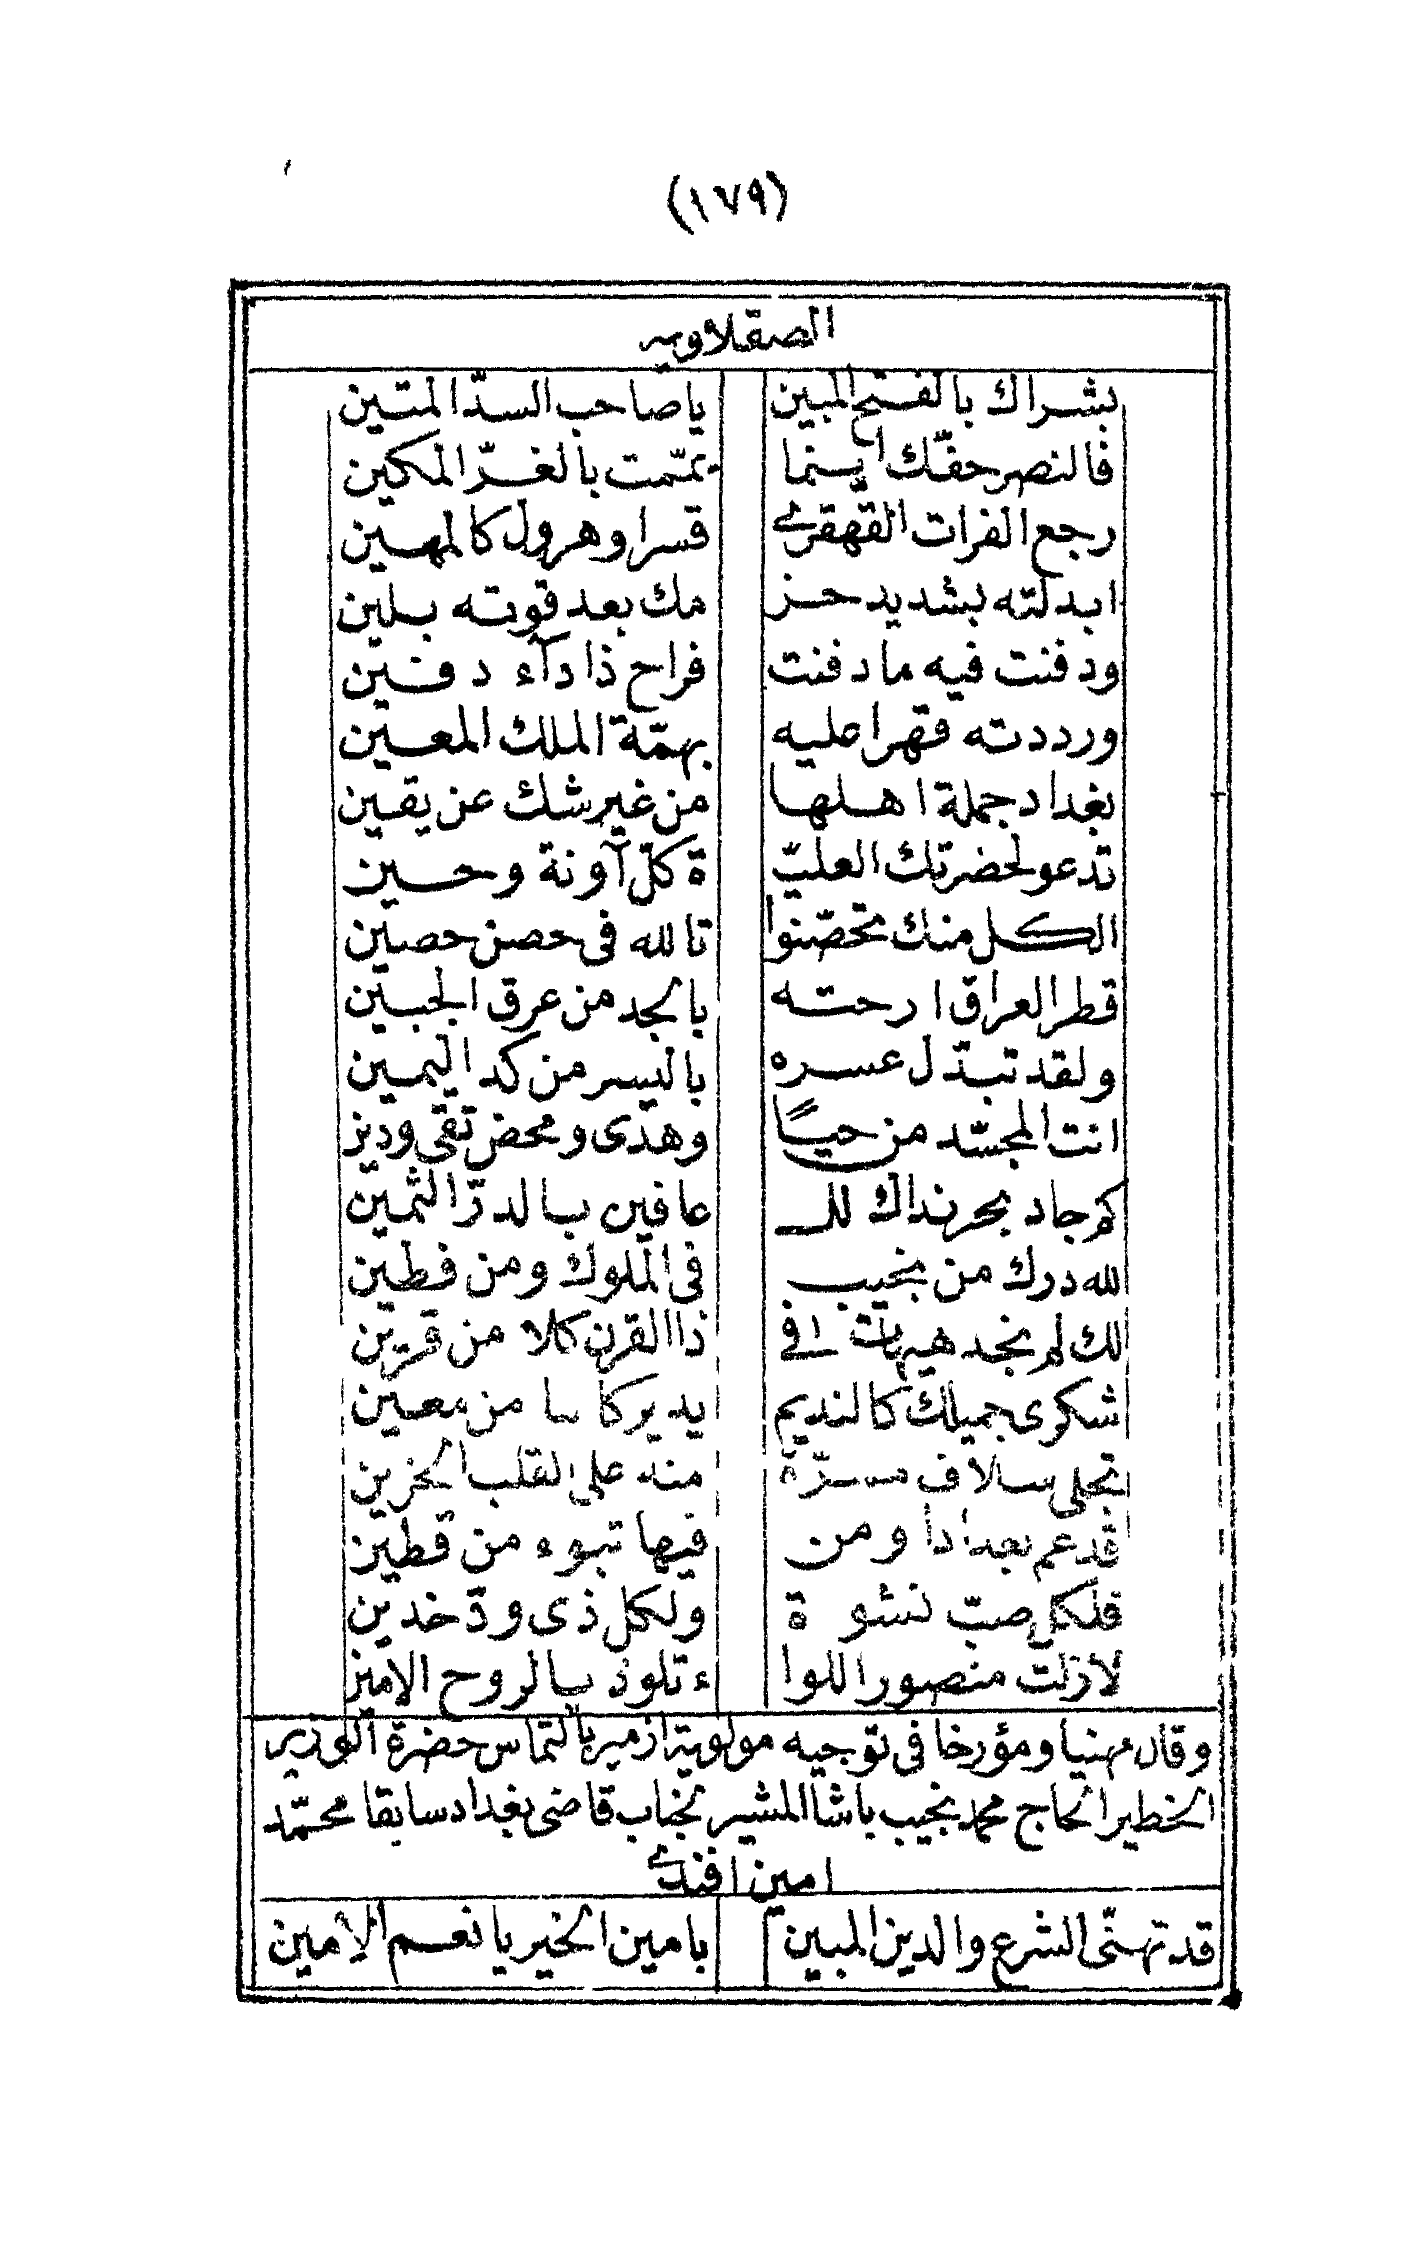 (١٧٩)
الصقلاويه
بشراك بالفتح المبين ياصاحب السدّ المتين
فالنصر حفّك اينما يمّمت بالغرّ المكين
رجع الفرات القهقرى قسرا وهرول كالمهين
ابدلته بشديد حز مك بعد قوته بلين
ودفنت فيه مادفنت فراح ذا دآء دفين
ورددته قهرا عليه بهمّة الملك المعين
بغداد جملة اهلها من غير شك عن يقين
تدعو لحضرتك العليّ ة كلّ آونة وحين
الكل منك تحصّنوا تالله فى حصن حصين
قطر العراق ارحته بالجد من عرق الجبين
ولقد تبدّل عسره باليسر من كد اليمين
انت المجسّد من حياً وهدى ومحض تقى ودين
كم جاد بحر نداك لل عافين بالدرّ الثمين
لله درك من نجيب فى الملوك ومن فطين
لك لم نجد هيهات افى ذا القرن كلا من قرين
شكرى جميلك كالنديم يدير كاسا من معين
تجلى سلاف مسرّة منه على القلب الحزين
قد عم بغدادا ومن فيها تبوء من قطين
فلكل صبّ نشوة ولكل ذى ودّ خدين
لازلت منصور اللوا ء تلوذ بالروح الامين
وقال مهنيا ومؤرخا فى توجيه مولوية ازمير بالتماس حضرة الوزير
الخطير الحاج محمد نجيب باشا المشير لجناب قاضى بغداد سابقا محمّد
امين افندى
قد تهنّى الشرع والدين المبين بامين الخير يا نعم الامين